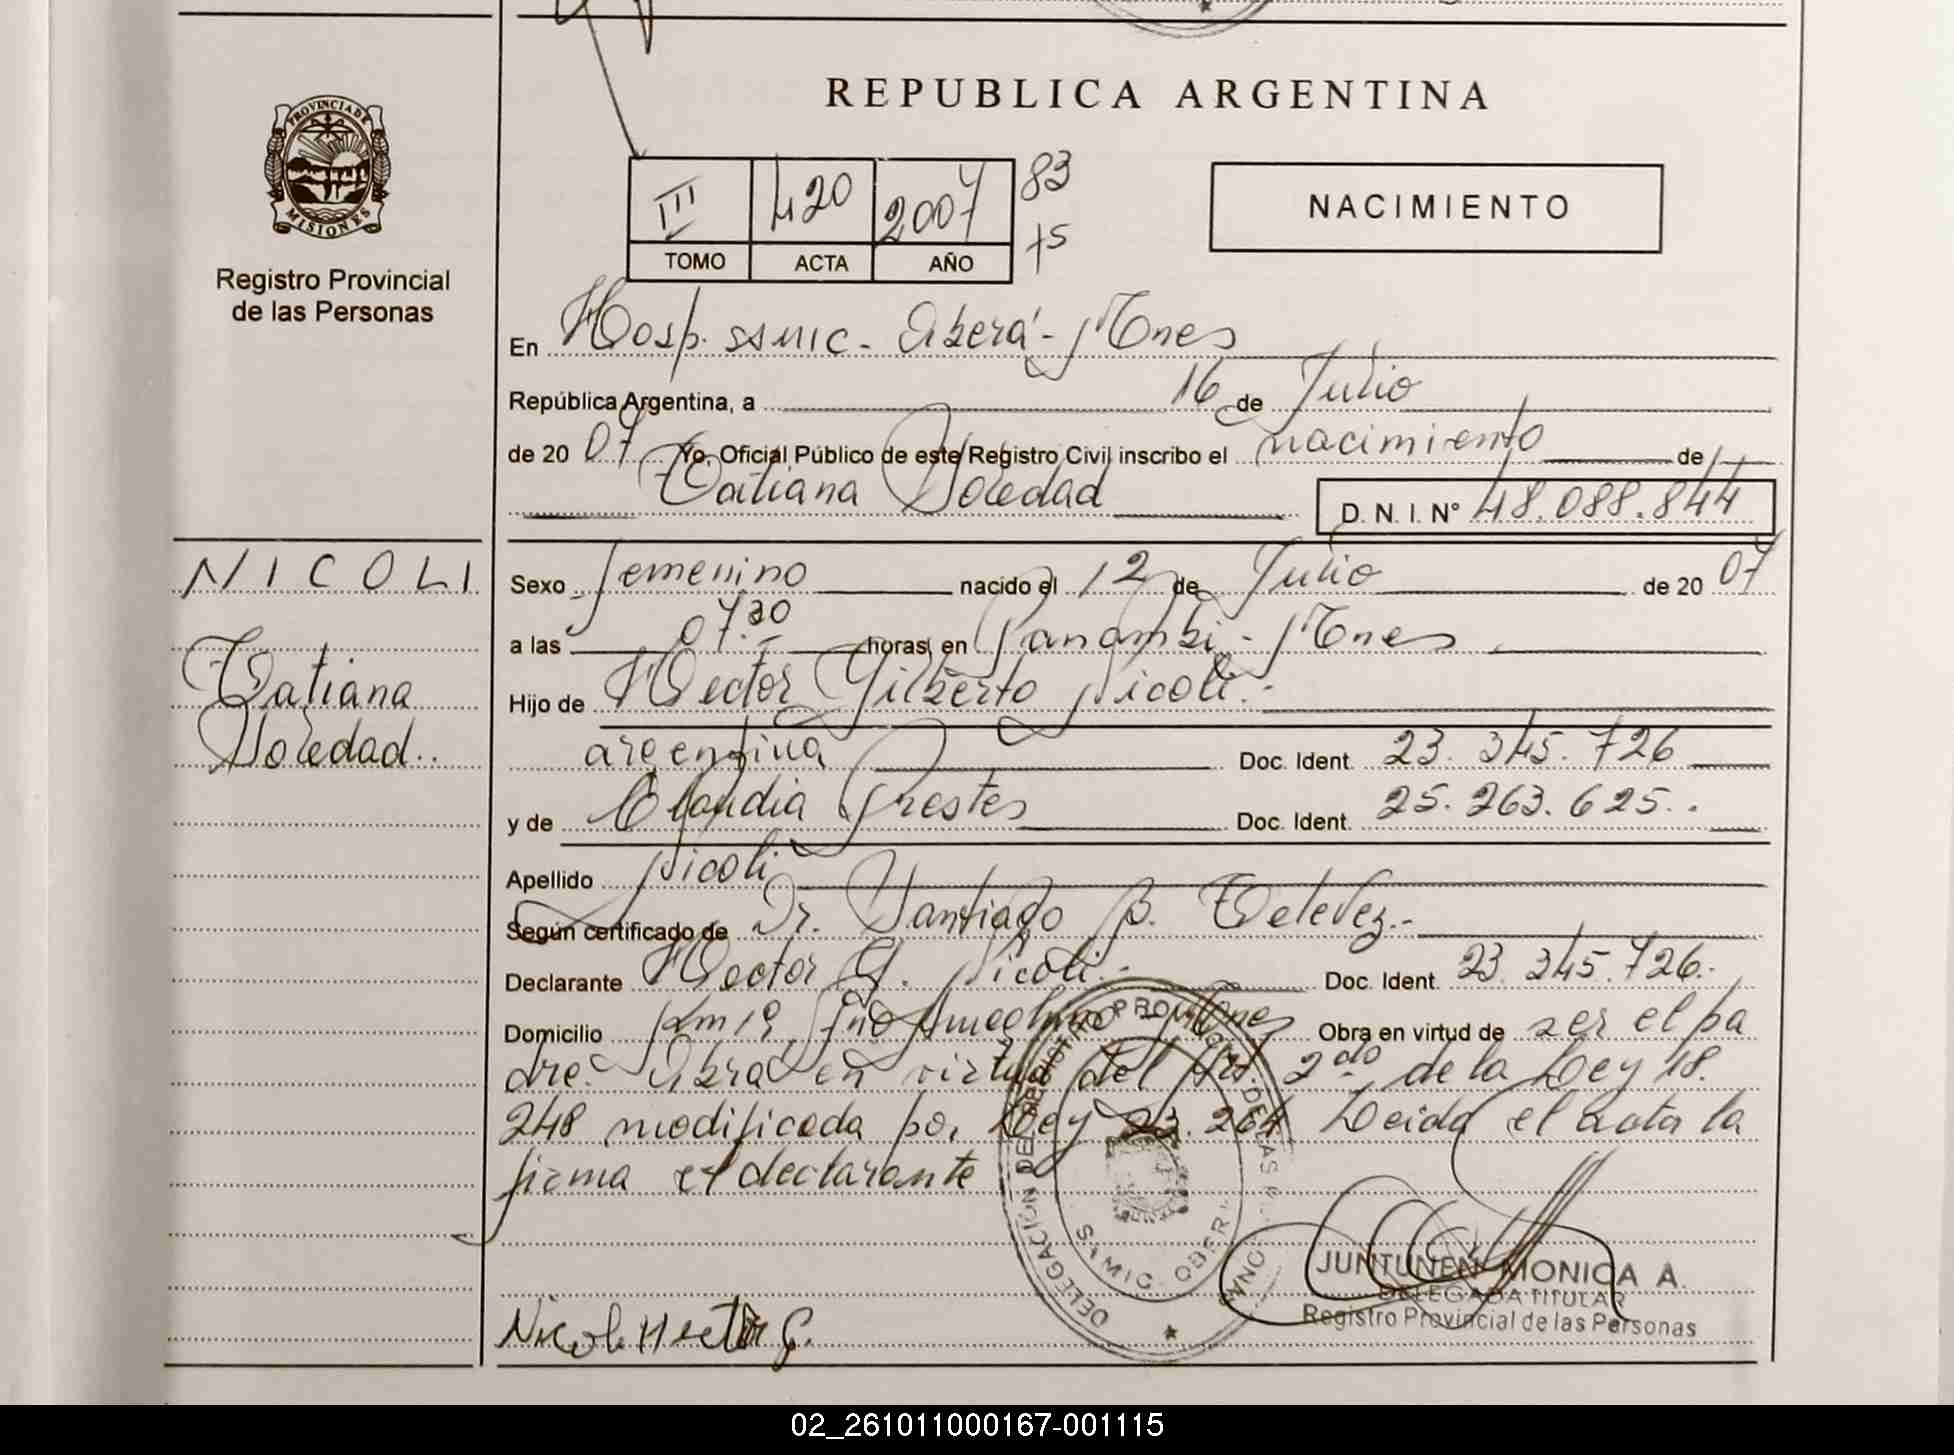 REPUBLICA ARGENTINA
PROVINCIA DE
MISIONES
Registro Provincial
de las Personas
III 420 2007 83
TOMO ACTA AÑO 75
NACIMIENTO
En Hosp. SAMIC - Oberá - Mnes
República Argentina, a 16 de Julio
de 20 07 Yo, Oficial Público de este Registro Civil inscribo el nacimiento de
Tatiana Soledad D. N. I. N° 48.088.844
NICOLI
Tatiana
Soledad..
Sexo femenino nacido el 12 de Julio de 20 07
a las 07.30 horas, en Panambi - Mnes
Hijo de Hector Gilberto Nicoli.-
argentina Doc. Ident. 23.345.726
y de Claudia Prestes Doc. Ident. 25.263.625..
Apellido Nicoli
Según certificado de Dr. Santiago B.
Declarante Hector G. Nicoli.- Doc. Ident. 23.345.726.-
Domicilio Km 19, Mnes Obra en virtud de ser el pa
dre. Obra en virtud del Art. 2do de la Ley 18.
248 modificada por Ley 23.264 Leida el acta la
firma el declarante
DELEGACION DEL REGISTRO PROVINCIAL DE LAS
SAMIC - OBERA
Nicoli Hector G.
JUNTUNEN MONICA A.
DELEGADA TITULAR
Registro Provincial de las Personas
02_261011000167-001115